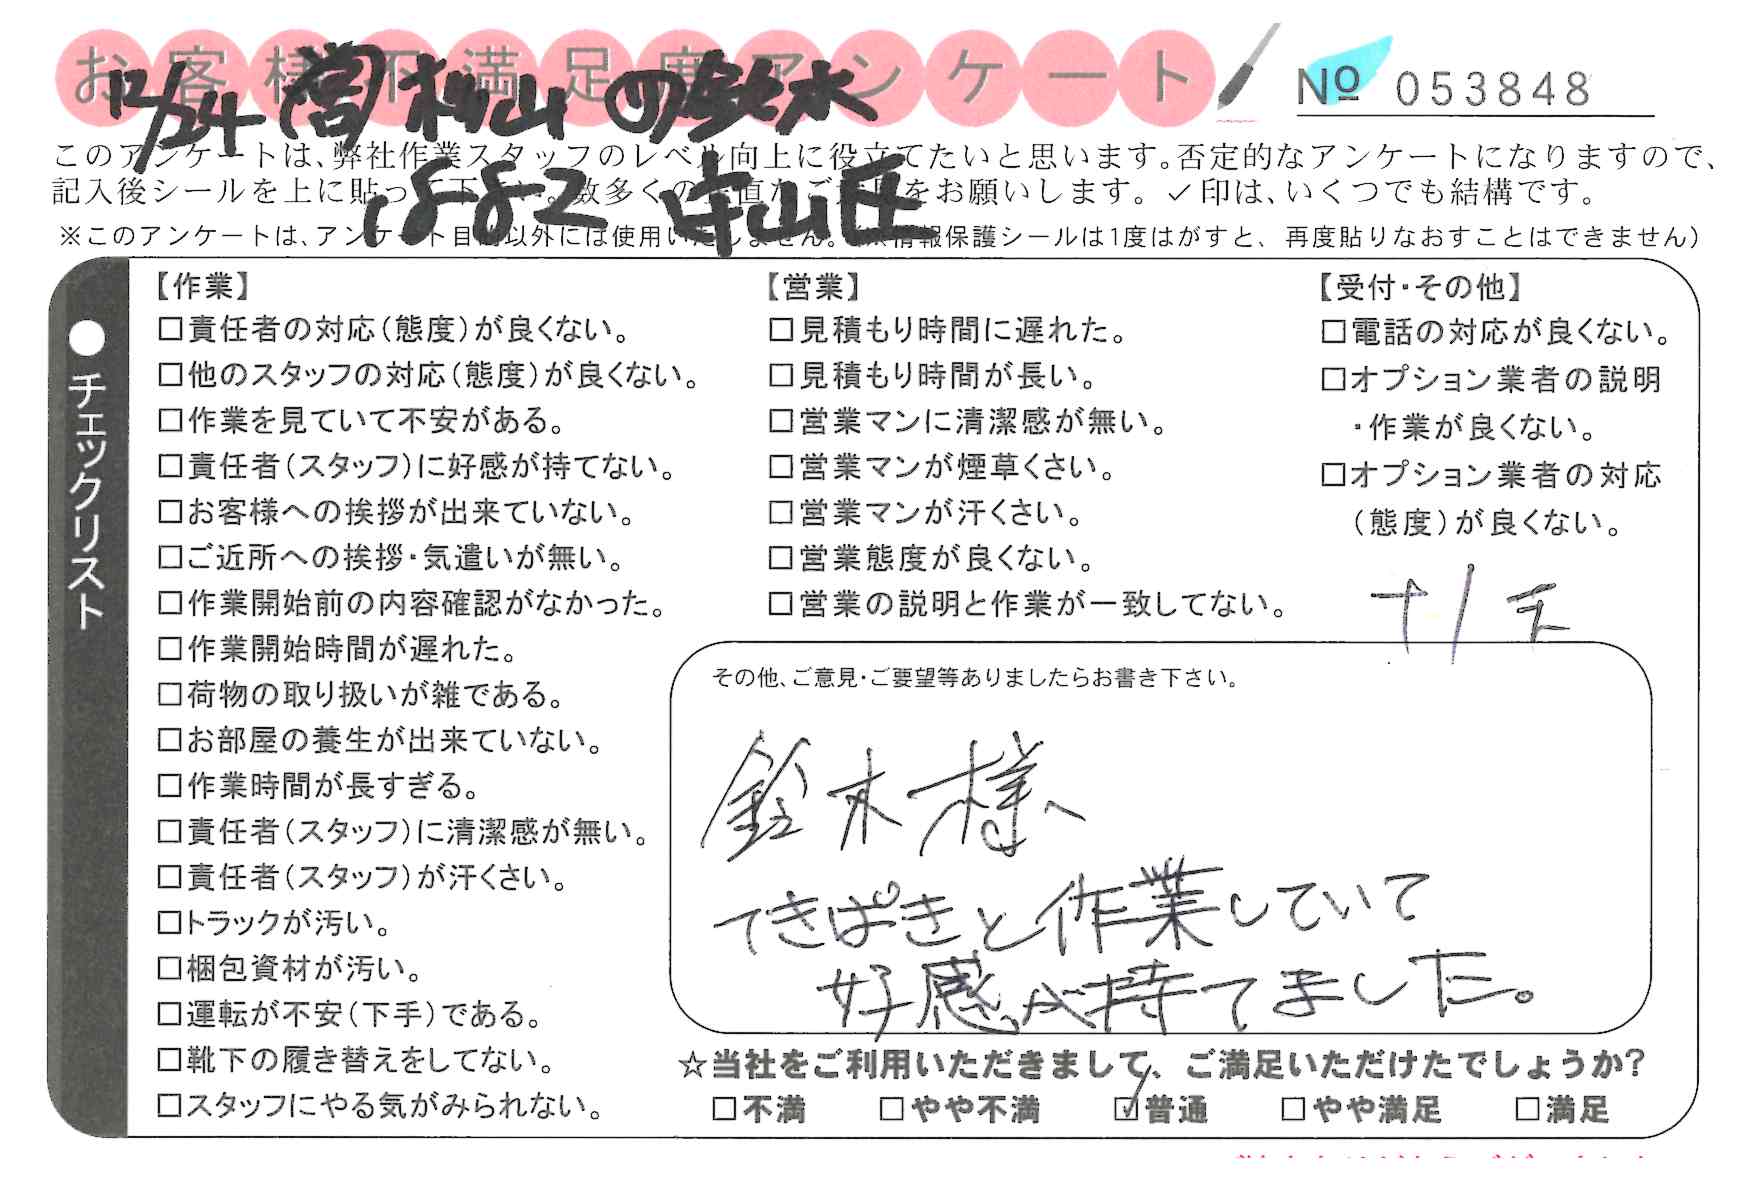 お客様不満足度アンケート
№ 053848
12/24 (営)杉山 の鈴木
1882 守山区
このアンケートは、弊社作業スタッフのレベル向上に役立てたいと思います。否定的なアンケートになりますので、
記入後シールを上に貼って下さい。数多くの正直なご意見をお願いします。✓印は、いくつでも結構です。
※このアンケートは、アンケート目的以外には使用いたしません。(※情報保護シールは1度はがすと、再度貼りなおすことはできません)
●チェックリスト
【作業】
□責任者の対応(態度)が良くない。
□他のスタッフの対応(態度)が良くない。
□作業を見ていて不安がある。
□責任者(スタッフ)に好感が持てない。
□お客様への挨拶が出来ていない。
□ご近所への挨拶・気遣いが無い。
□作業開始前の内容確認がなかった。
□作業開始時間が遅れた。
□荷物の取り扱いが雑である。
□お部屋の養生が出来ていない。
□作業時間が長すぎる。
□責任者(スタッフ)に清潔感が無い。
□責任者(スタッフ)が汗くさい。
□トラックが汚い。
□梱包資材が汚い。
□運転が不安(下手)である。
□靴下の履き替えをしてない。
□スタッフにやる気がみられない。
【営業】
□見積もり時間に遅れた。
□見積もり時間が長い。
□営業マンに清潔感が無い。
□営業マンが煙草くさい。
□営業マンが汗くさい。
□営業態度が良くない。
□営業の説明と作業が一致してない。
【受付・その他】
□電話の対応が良くない。
□オプション業者の説明
・作業が良くない。
□オプション業者の対応
(態度)が良くない。
その他、ご意見・ご要望等ありましたらお書き下さい。
鈴木様へ
てきぱきと作業していて
好感が持てました。
☆当社をご利用いただきまして、ご満足いただけたでしょうか?
□不満 □やや不満 ☑普通 □やや満足 □満足